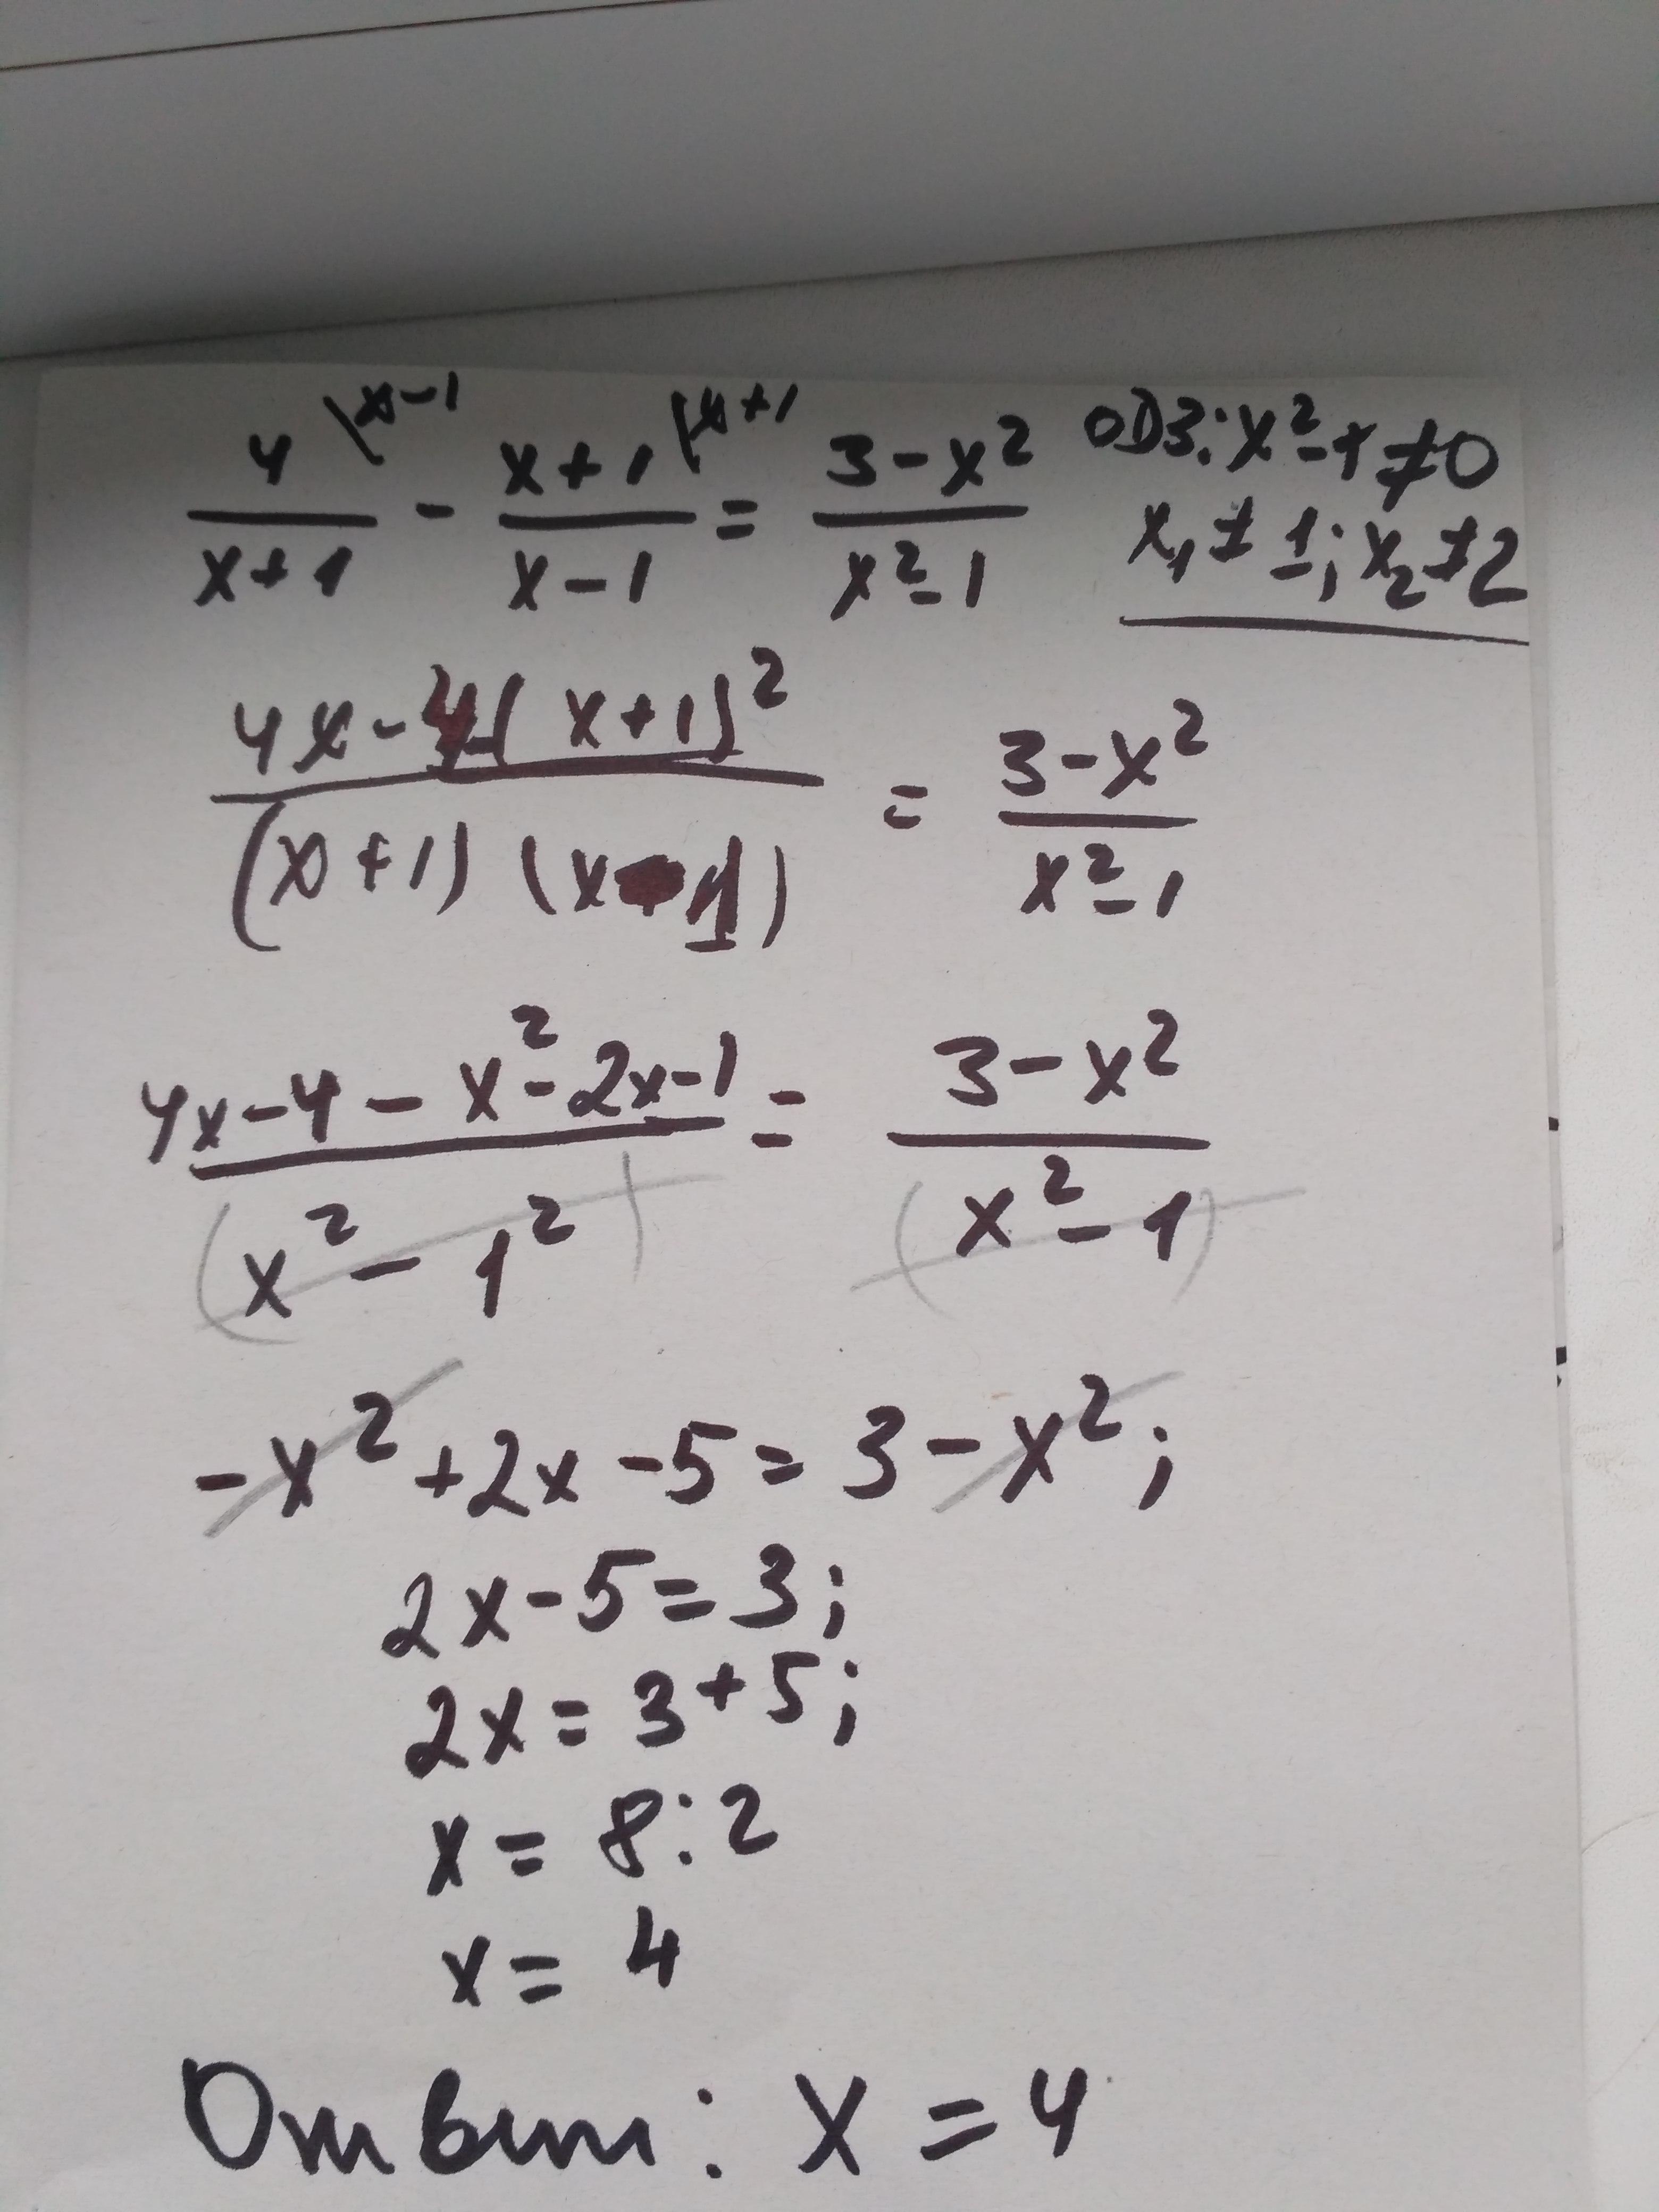 4 \x-1 / x+1 - x+1 \x+1 / x-1 = 3-x² / x²-1 ОДЗ: x²-1≠0
x₁ ≠ 1; x₂ ≠ 2
4x-4-(x+1)² / (x+1)(x-1) = 3-x² / x²-1
4x-4-x²-2x-1 / (x²-1²) = 3-x² / (x²-1)
-x²+2x-5=3-x²;
2x-5=3;
2x=3+5;
x=8:2
x=4
Ответ: x=4